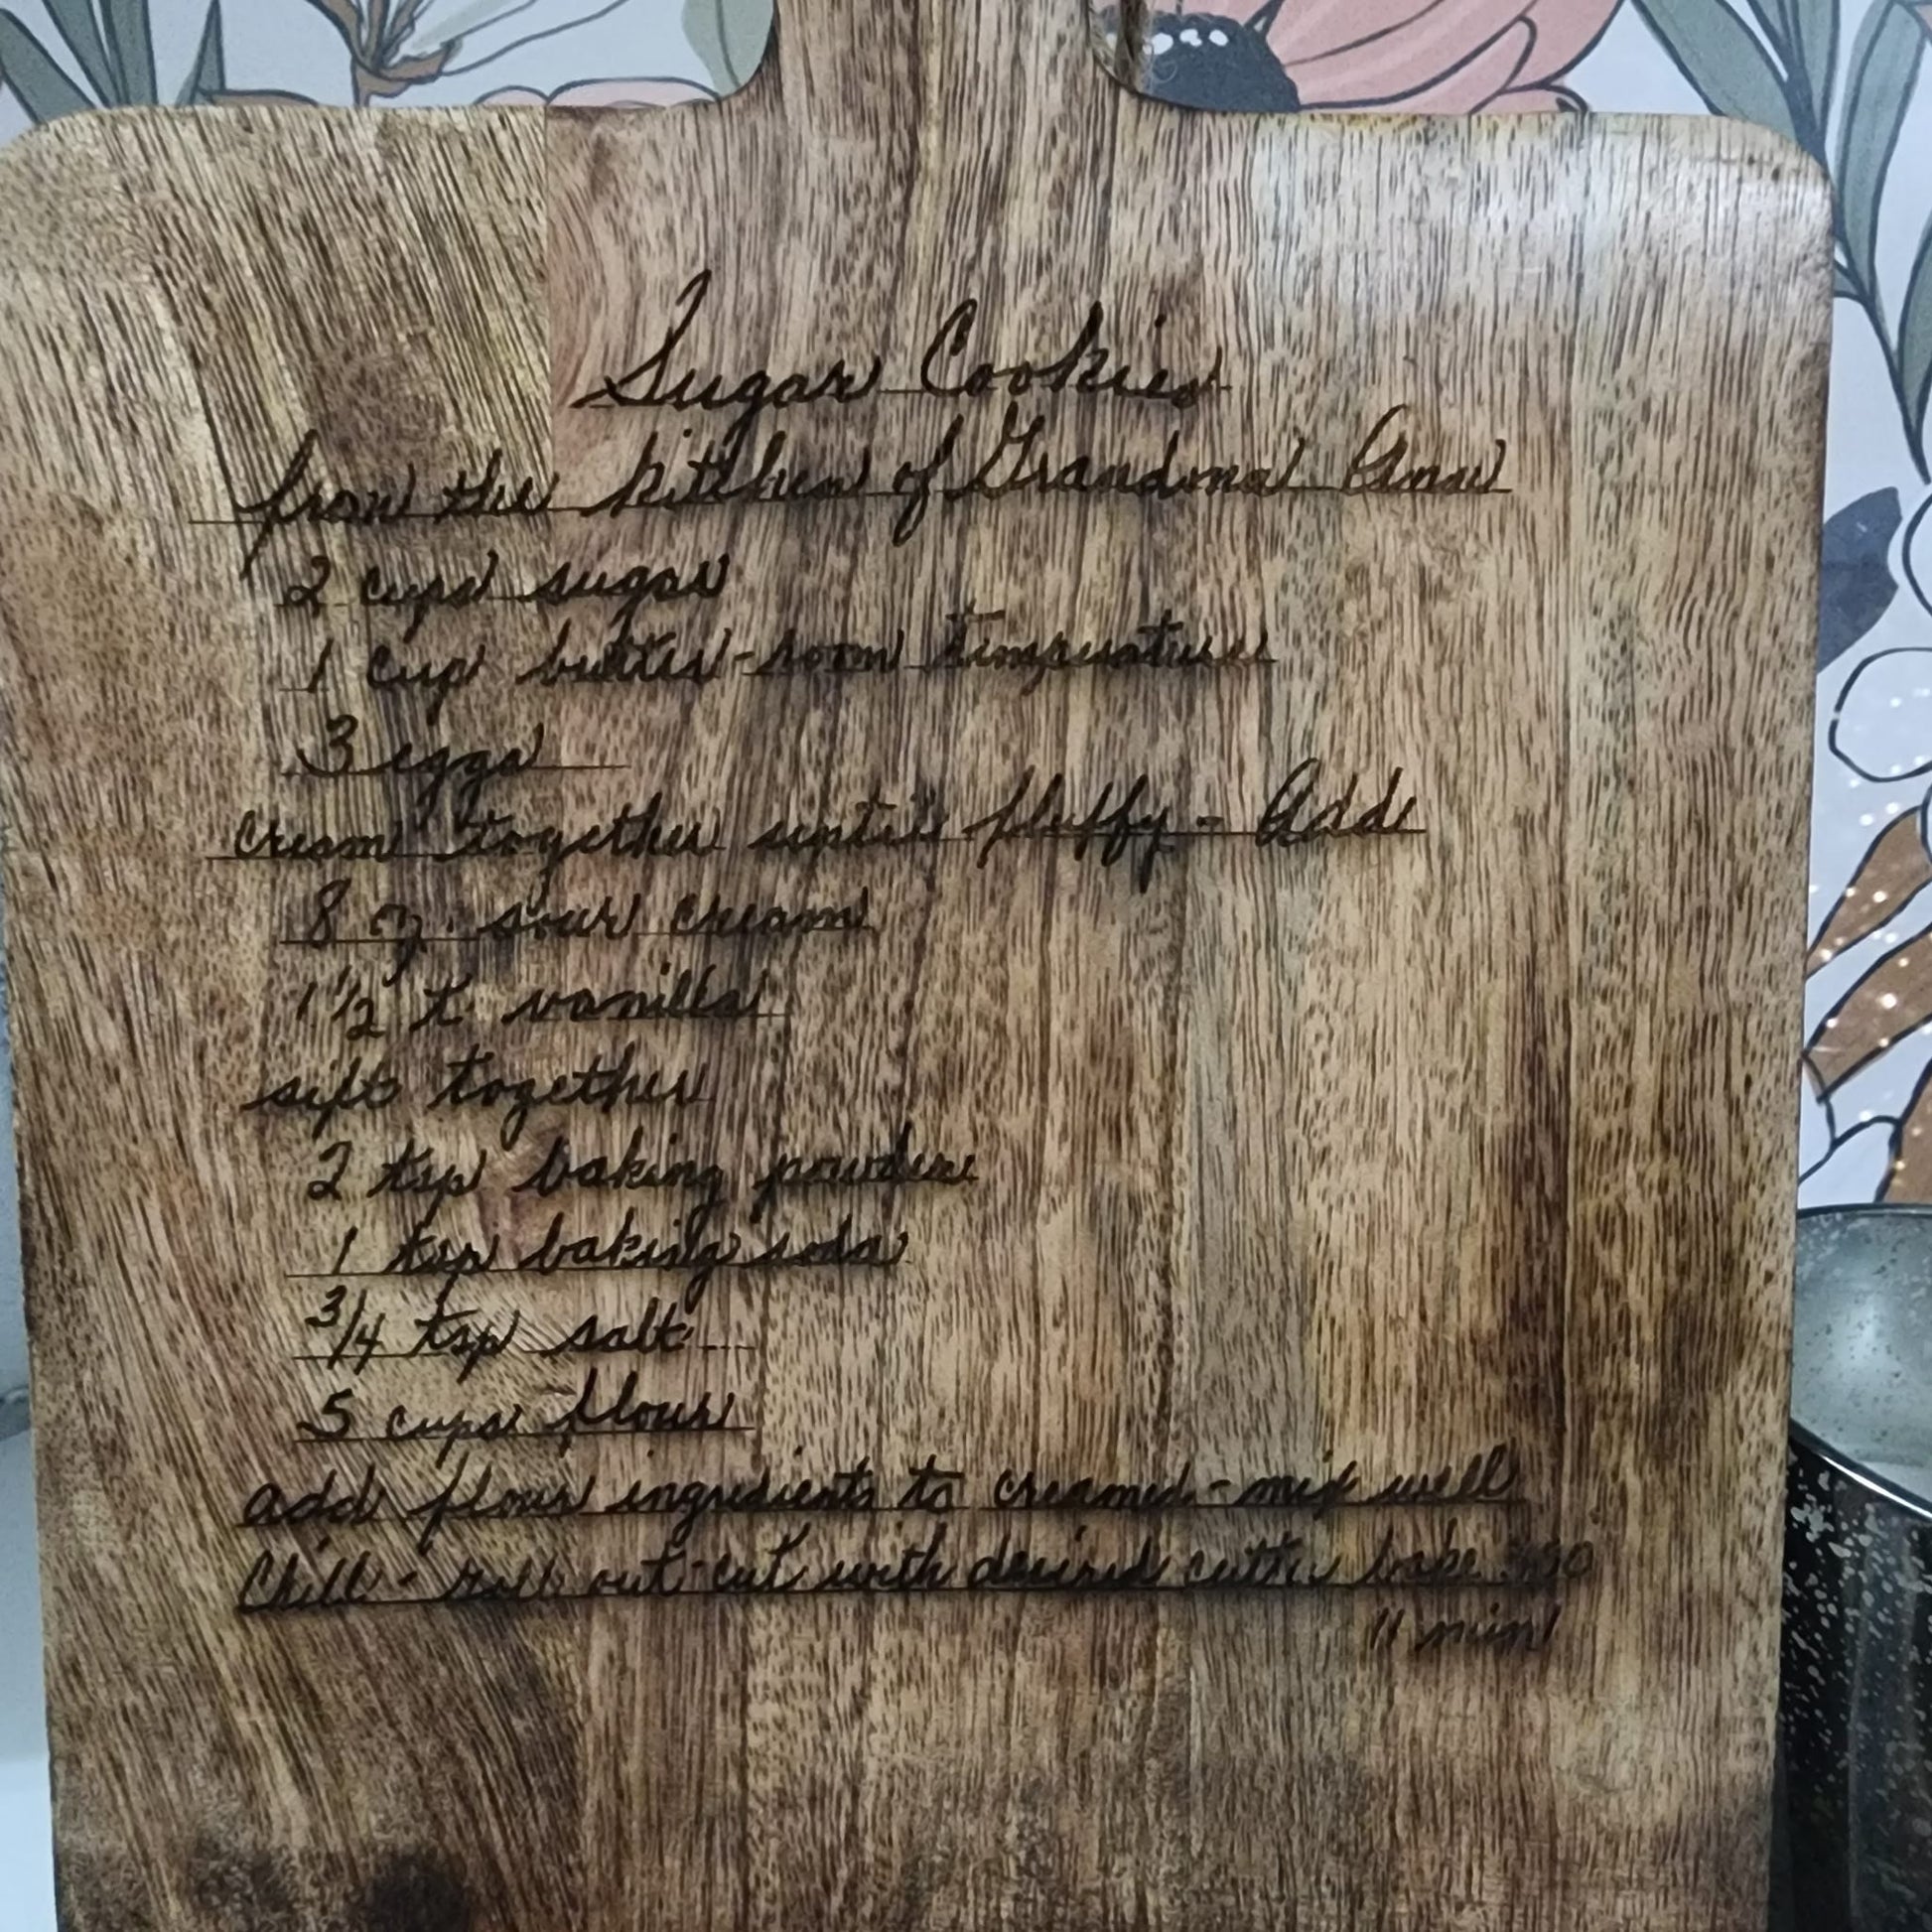 Sugar Cookies
from the kitchen of Grandma Ann
2 cups sugar
1 cup butter-room temperature
3 eggs
cream together until fluffy - Add
8 oz. sour cream
1 1/2 t. vanilla
sift together
2 tsp baking powder
1 tsp baking soda
3/4 tsp salt
5 cups flour
add flour ingredients to creamed - mix well
Chill - roll out - cut with desired cutter bake
11 min